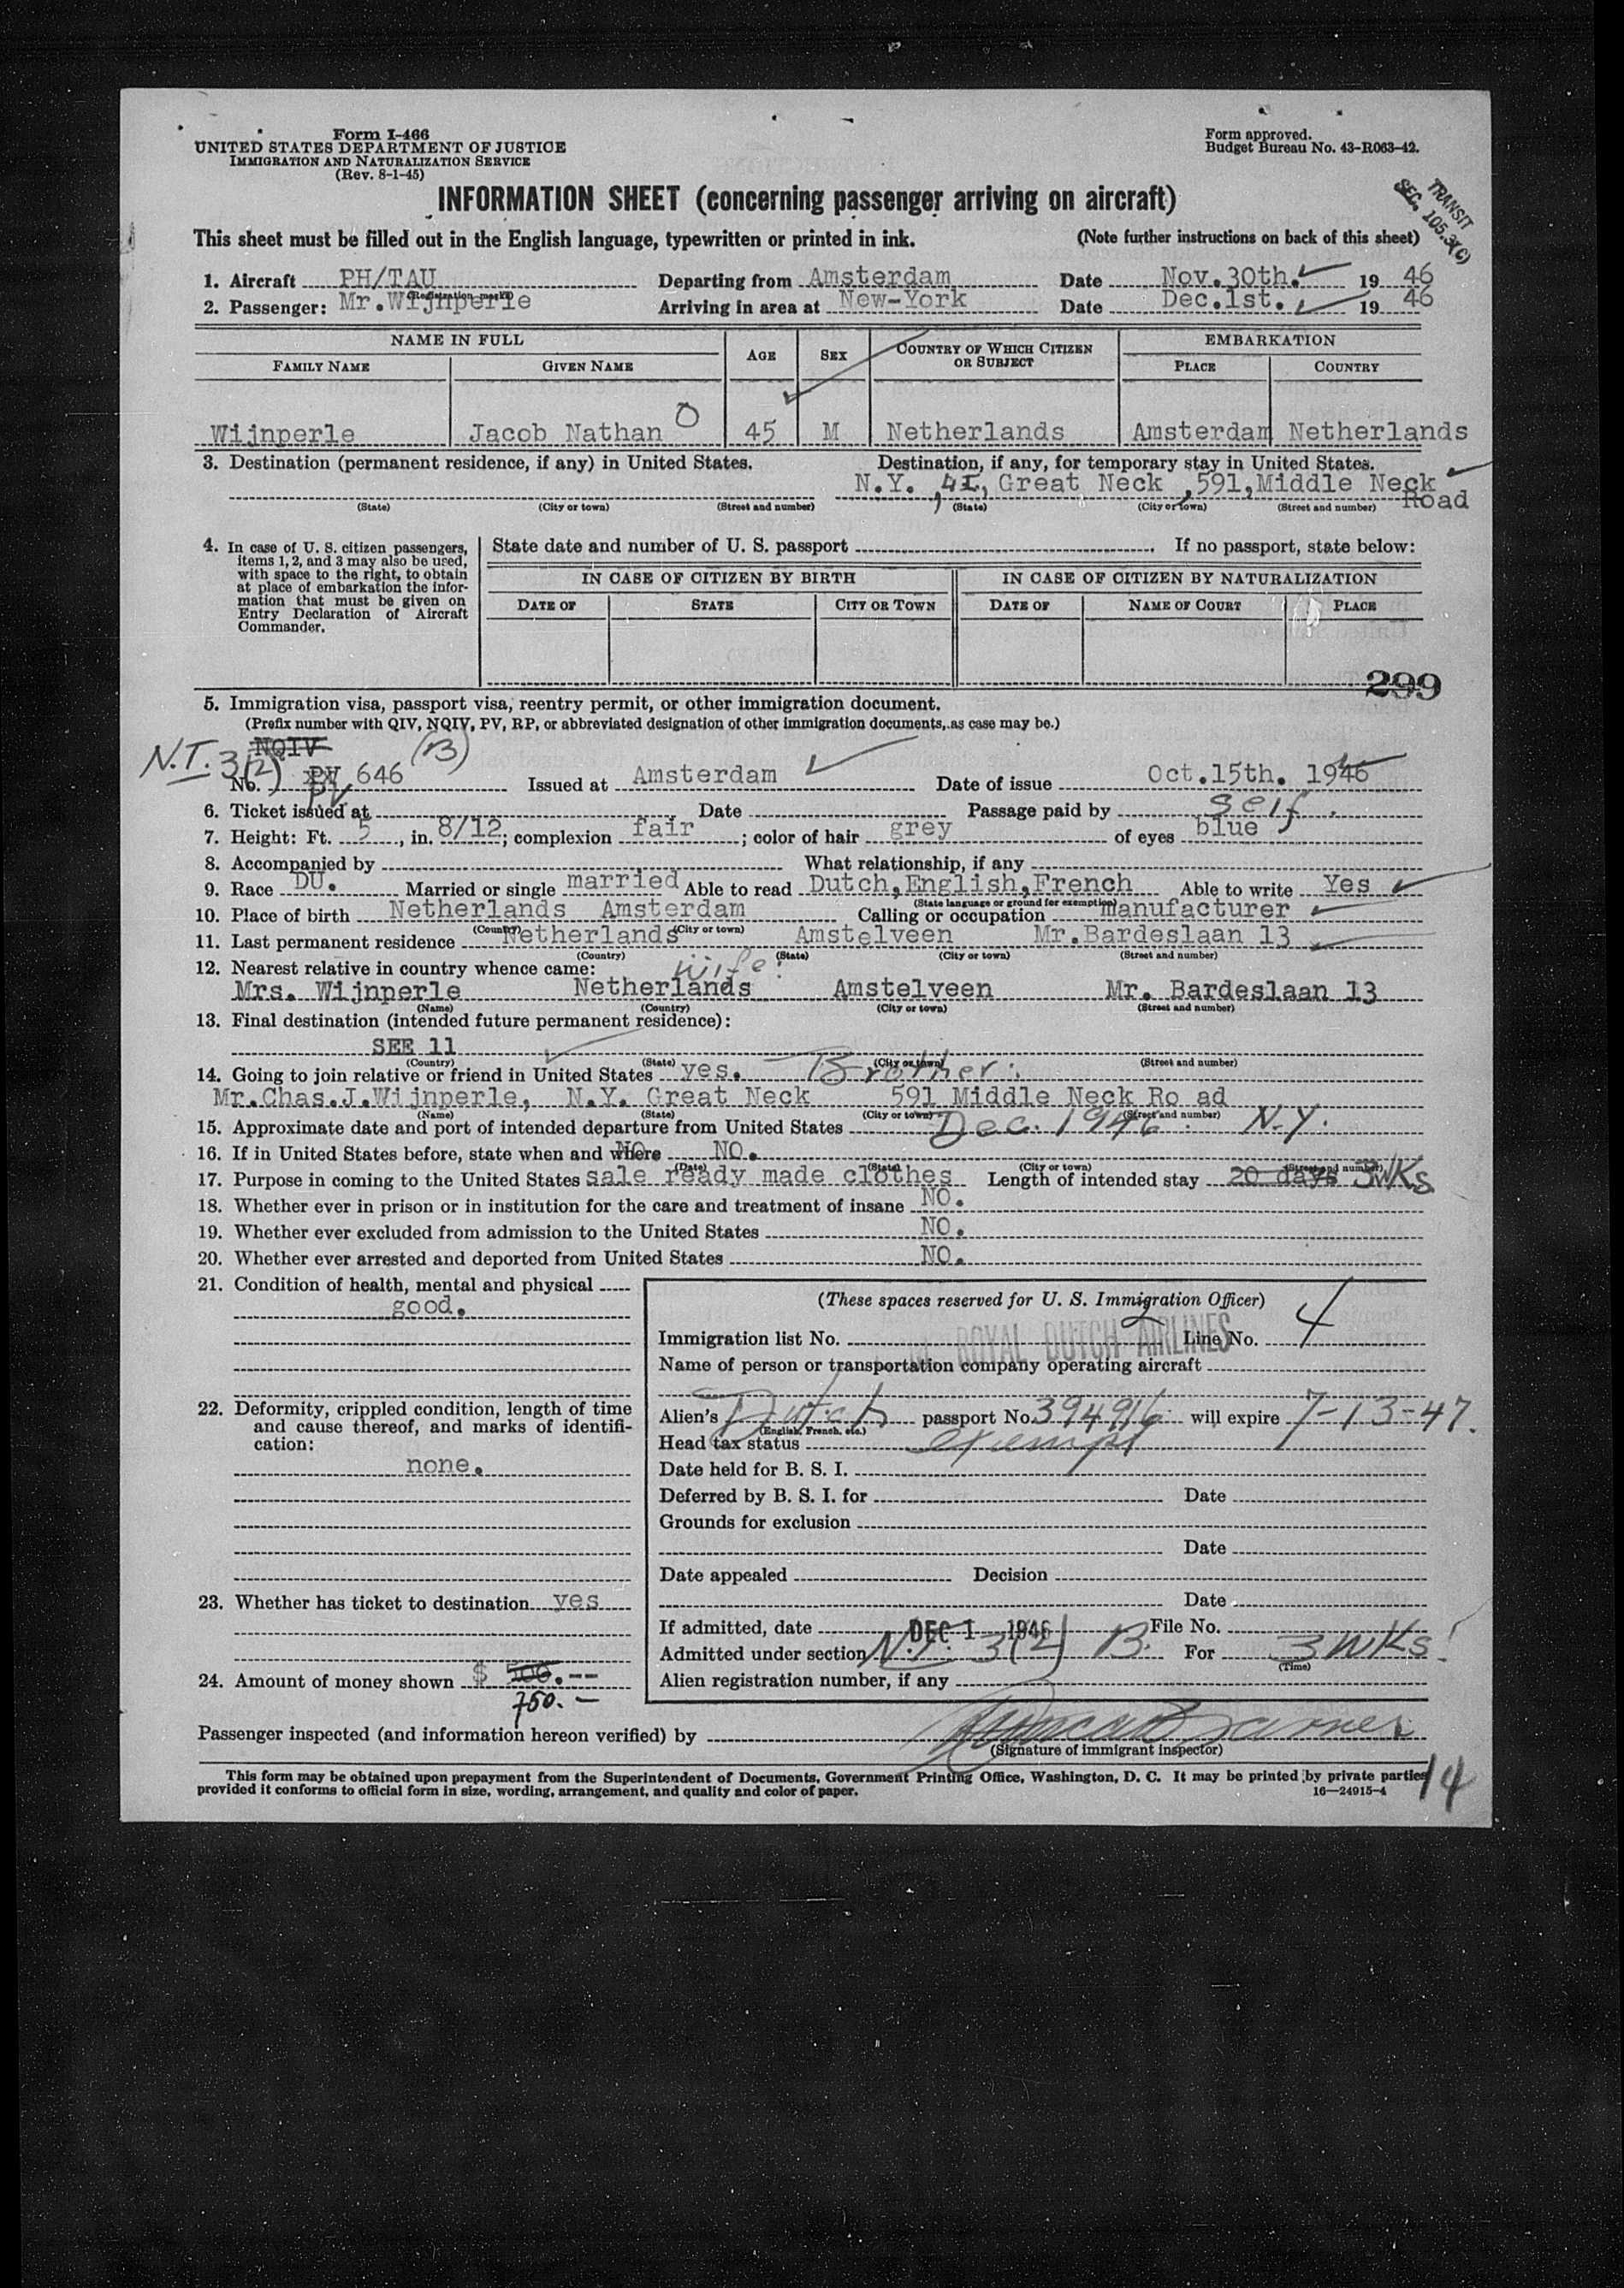 Form I-466
UNITED STATES DEPARTMENT OF JUSTICE
IMMIGRATION AND NATURALIZATION SERVICE
(Rev. 8-1-45)
Form approved.
Budget Bureau No. 43-R063-42.
INFORMATION SHEET (concerning passenger arriving on aircraft)
TRANSIT
SEC. 105.3(C)
This sheet must be filled out in the English language, typewritten or printed in ink. (Note further instructions on back of this sheet)
1. Aircraft PH/TAU Departing from Amsterdam Date Nov.30th. 1946
(Registration marks)
2. Passenger: Mr.Wijnperle Arriving in area at New-York Date Dec.1st. 1946
NAME IN FULL AGE SEX COUNTRY OF WHICH CITIZEN OR SUBJECT EMBARKATION
FAMILY NAME GIVEN NAME PLACE COUNTRY
Wijnperle Jacob Nathan O 45 M Netherlands Amsterdam Netherlands
3. Destination (permanent residence, if any) in United States. Destination, if any, for temporary stay in United States.
N.Y. , Great Neck ,591,Middle Neck Road
(State) (City or town) (Street and number) (State) (City or town) (Street and number)
4. In case of U. S. citizen passengers, items 1, 2, and 3 may also be used, with space to the right, to obtain at place of embarkation the information that must be given on Entry Declaration of Aircraft Commander.
State date and number of U. S. passport . If no passport, state below:
IN CASE OF CITIZEN BY BIRTH IN CASE OF CITIZEN BY NATURALIZATION
DATE OF STATE CITY OR TOWN DATE OF NAME OF COURT PLACE
299
5. Immigration visa, passport visa, reentry permit, or other immigration document.
(Prefix number with QIV, NQIV, PV, RP, or abbreviated designation of other immigration documents, as case may be.)
NQIV
N.T. 3(2) (B)
No. PV 646 Issued at Amsterdam Date of issue Oct.15th. 1946
PV
6. Ticket issued at Date Passage paid by self.
7. Height: Ft. 5, in. 8/12; complexion fair; color of hair grey of eyes blue
8. Accompanied by What relationship, if any
9. Race DU. Married or single married Able to read Dutch,English,French Able to write Yes
(State language or ground for exemption)
10. Place of birth Netherlands Amsterdam Calling or occupation manufacturer
(Country) (City or town)
11. Last permanent residence Netherlands Amstelveen Mr.Bardeslaan 13
(Country) (State) (City or town) (Street and number)
12. Nearest relative in country whence came: Wife:
Mrs. Wijnperle Netherlands Amstelveen Mr. Bardeslaan 13
(Name) (Country) (City or town) (Street and number)
13. Final destination (intended future permanent residence):
SEE 11
(Country) (State) (City or town) (Street and number)
14. Going to join relative or friend in United States yes. Brother:
Mr.Chas.J.Wijnperle, N.Y. Great Neck 591 Middle Neck Ro ad
(Name) (State) (City or town) (Street and number)
15. Approximate date and port of intended departure from United States Dec. 1946. N.Y.
16. If in United States before, state when and where NO NO.
(Date) (State) (City or town) (Street and number)
17. Purpose in coming to the United States sale ready made clothes Length of intended stay 20 days 3WKs
18. Whether ever in prison or in institution for the care and treatment of insane NO.
19. Whether ever excluded from admission to the United States NO.
20. Whether ever arrested and deported from United States NO.
21. Condition of health, mental and physical
good.
22. Deformity, crippled condition, length of time and cause thereof, and marks of identification:
none.
23. Whether has ticket to destination yes
24. Amount of money shown $ 500.--
750.—
(These spaces reserved for U. S. Immigration Officer)
Immigration list No. 2 Line No. 4
ROYAL DUTCH AIRLINES
Name of person or transportation company operating aircraft
Alien's Dutch passport No. 394916 will expire 7-13-47.
(English, French, etc.)
Head tax status exempt
Date held for B. S. I.
Deferred by B. S. I. for Date
Grounds for exclusion
Date
Date appealed Decision
Date
If admitted, date DEC 1 1946 File No.
Admitted under section N.T. 3(2) B. For 3 WKs.
(Time)
Alien registration number, if any
Passenger inspected (and information hereon verified) by
(Signature of immigrant inspector)
This form may be obtained upon prepayment from the Superintendent of Documents, Government Printing Office, Washington, D. C. It may be printed by private parties
provided it conforms to official form in size, wording, arrangement, and quality and color of paper. 16—24915-4
14